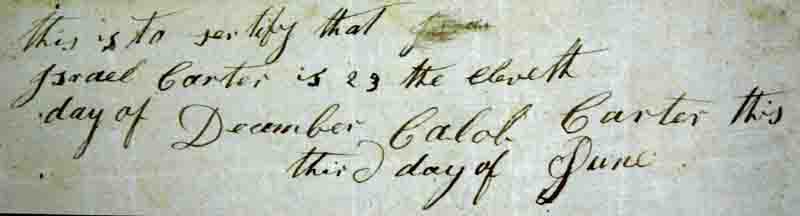 this is to sertify that
Israel Carter is 23 the eleveth
day of December Calob Carter this
third day of June